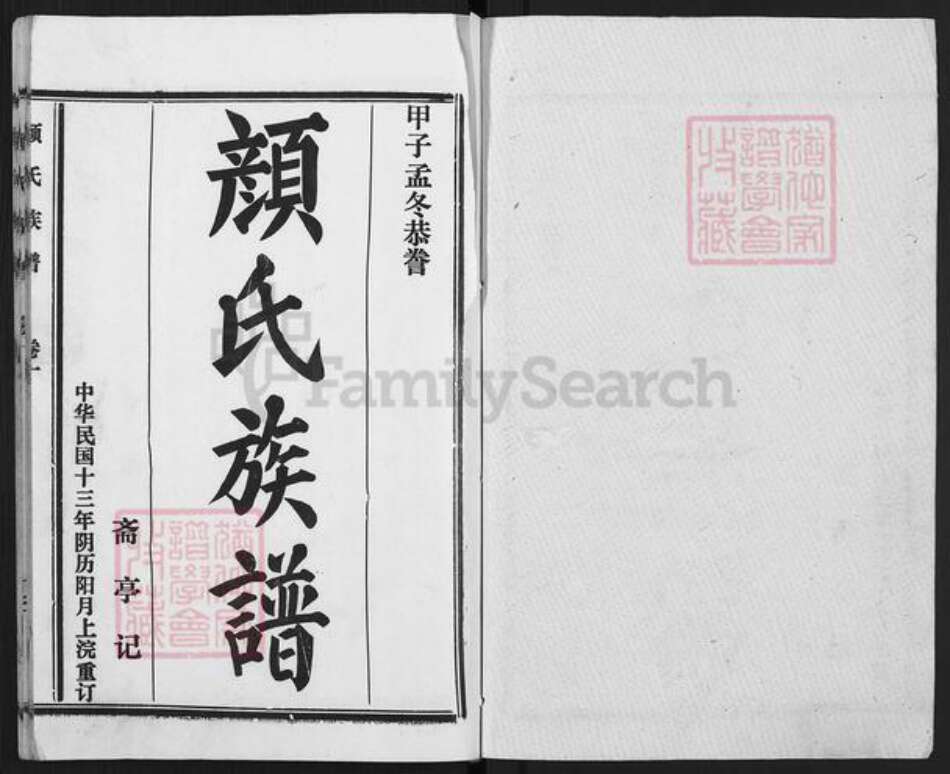 甲子孟冬恭誊
顏氏族譜
斋亭记
中华民国十三年阴历阳月上浣重订
氏族谱 卷一
FamilySearch